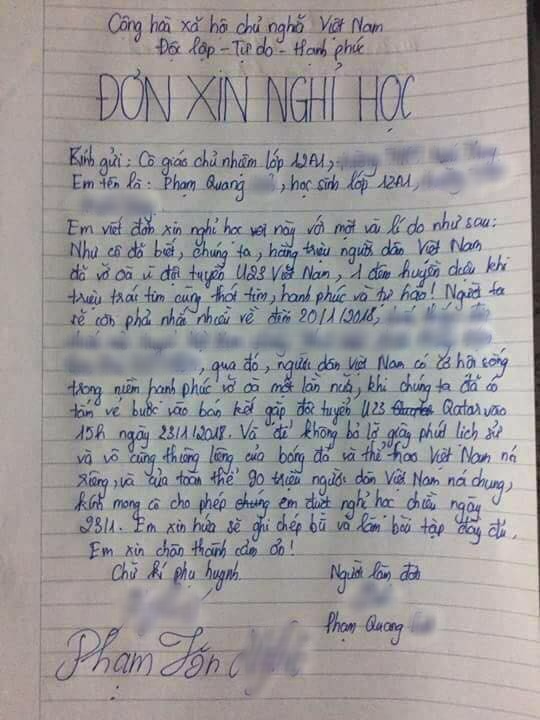 Cộng hoà xã hội chủ nghĩa Việt Nam
Độc lập - Tự do - Hạnh phúc
ĐƠN XIN NGHỈ HỌC
Kính gửi: Cô giáo chủ nhiệm lớp 12A1,
Em tên là: Phạm Quang , học sinh lớp 12A1,
Em viết đơn xin nghỉ học này với một vài lí do như sau:
Như cô đã biết, chúng ta, hàng triệu người dân Việt Nam
đã vỡ oà vì đội tuyển U23 Việt Nam, 1 đêm huyền diệu khi
triệu trái tim cùng thót tim, hạnh phúc và tự hào! Người ta
sẽ còn phải nhắc nhiều về đêm 20/1/2018,
, qua đó, người dân Việt Nam có cơ hội sống
trong niềm hạnh phúc vỡ oà một lần nữa, khi chúng ta đã có
tấm vé bước vào bán kết gặp đội tuyển U23 Qatar vào
15h ngày 23/1/2018. Và để không bỏ lỡ giây phút lịch sử
và vô cùng thiêng liêng của bóng đá và thể thao Việt Nam nói
riêng, và của toàn thể 90 triệu người dân Việt Nam nói chung,
kính mong cô cho phép em được nghỉ học chiều ngày
23/1. Em xin hứa sẽ ghi chép bù và làm bài tập đầy đủ.
Em xin chân thành cảm ơn!
Chữ kí phụ huynh Người làm đơn
Phạm Quang
Phạm Tấn